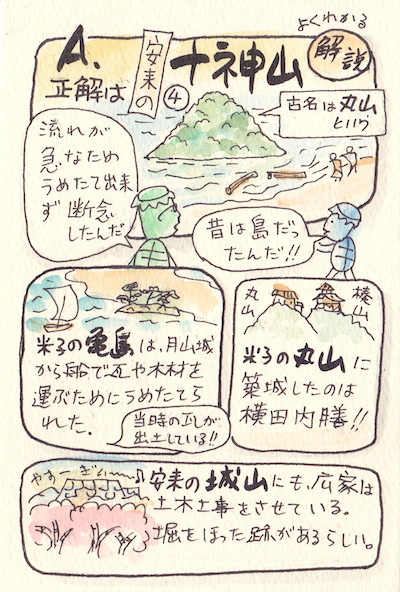 よくわかる
解説
A.
正解は
安来の
④
十神山
古名は丸山
という
流れが
急なため
うめたて出来
ず断念
したんだ
昔は島だっ
たんだ!!
米子の亀島は、月山城
から船で瓦や木材を
運ぶためにうめたてら
れた。
当時の瓦が
出土している!!
丸山
湊山
米子の丸山に
築城したのは
横田内膳!!
やすーぎぃ〜〜♪
安来の城山にも、広家は
土木工事をさせている。
堀をほった跡があるらしい。